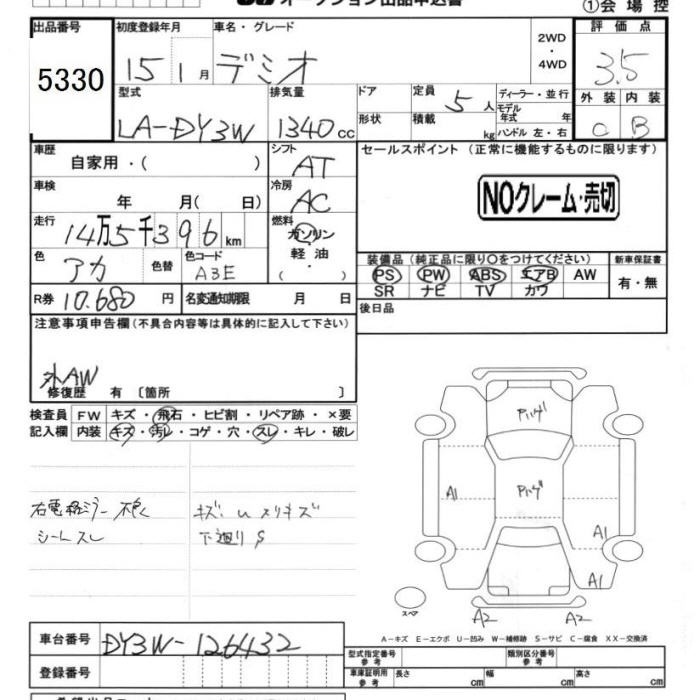 オークション出品申込書
①会場控
出品番号 初度登録年月 車名・グレード 2WD・4WD 評価点
5330 15 1月 デミオ 3.5
型式 排気量 ドア 定員 5人 ディーラー・並行 外装 内装
LA-DY3W 1340cc 形状 積載 kg モデル年式 年 ハンドル 左・右 C B
車歴 自家用・( ) シフト AT セールスポイント (正常に機能するものに限ります)
車検 年 月( 日) 冷房 AC NOクレーム・売切
走行 14万5千396km 燃料 ガソリン・軽油・( )
色 アカ 色替 色コード A3E 装備品 (純正品に限り○をつけてください) 新車保証書
PS PW ABS エアB AW 有・無
SR ナビ TV カワ
R券 10.680円 名変通知期限 月 日 後日品
注意事項申告欄 (不具合内容等は具体的に記入して下さい)
外AW
修復歴 有 〔箇所 〕
検査員 FW キズ・飛石・ヒビ割・リペア跡・×要
記入欄 内装 キズ・汚レ・コゲ・穴・スレ・キレ・破レ
右電格ミラー不良 キズ.U.スリキズ
シートスレ 下廻りS
A1 A1 A1
スペア A2 A2
A−キズ E−エクボ U−凹み W−補修跡 S−サビ C−腐食 XX−交換済
車台番号 DY3W-126432 型式指定番号 参考 類別区分番号 参考
登録番号 車庫証明用 参考 長さ cm 幅 cm 高さ cm